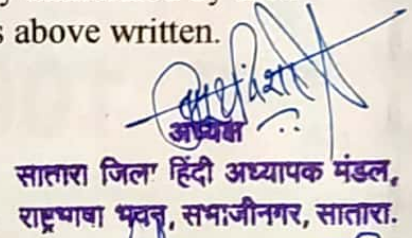 s above written.
अध्यक्ष
सातारा जिला हिंदी अध्यापक मंडल,
राष्ट्रभाषा भवन, संभाजीनगर, सातारा.